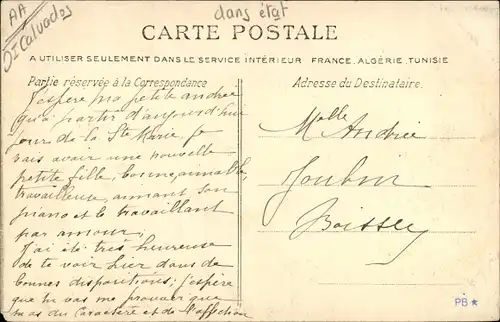 AA
Dt Calvados
dans état
CARTE POSTALE
A UTILISER SEULEMENT DANS LE SERVICE INTÉRIEUR FRANCE, ALGÉRIE, TUNISIE
Partie réservée à la Correspondance
J'espère ma petite andrée
qu'à partir d'aujourd'hui
jour de la Ste Marie je
vais avoir une nouvelle
petite fille, bonne, aimable,
travailleuse, aimant son
piano et le travaillant
par amour;
J'ai été très heureuse
de te voir hier dans de
bonnes dispositions; j'espère
que tu vas me prouver que
tu as du caractère et de l'affection
Adresse du Destinataire.
Melle Andrée
Boissey
PB